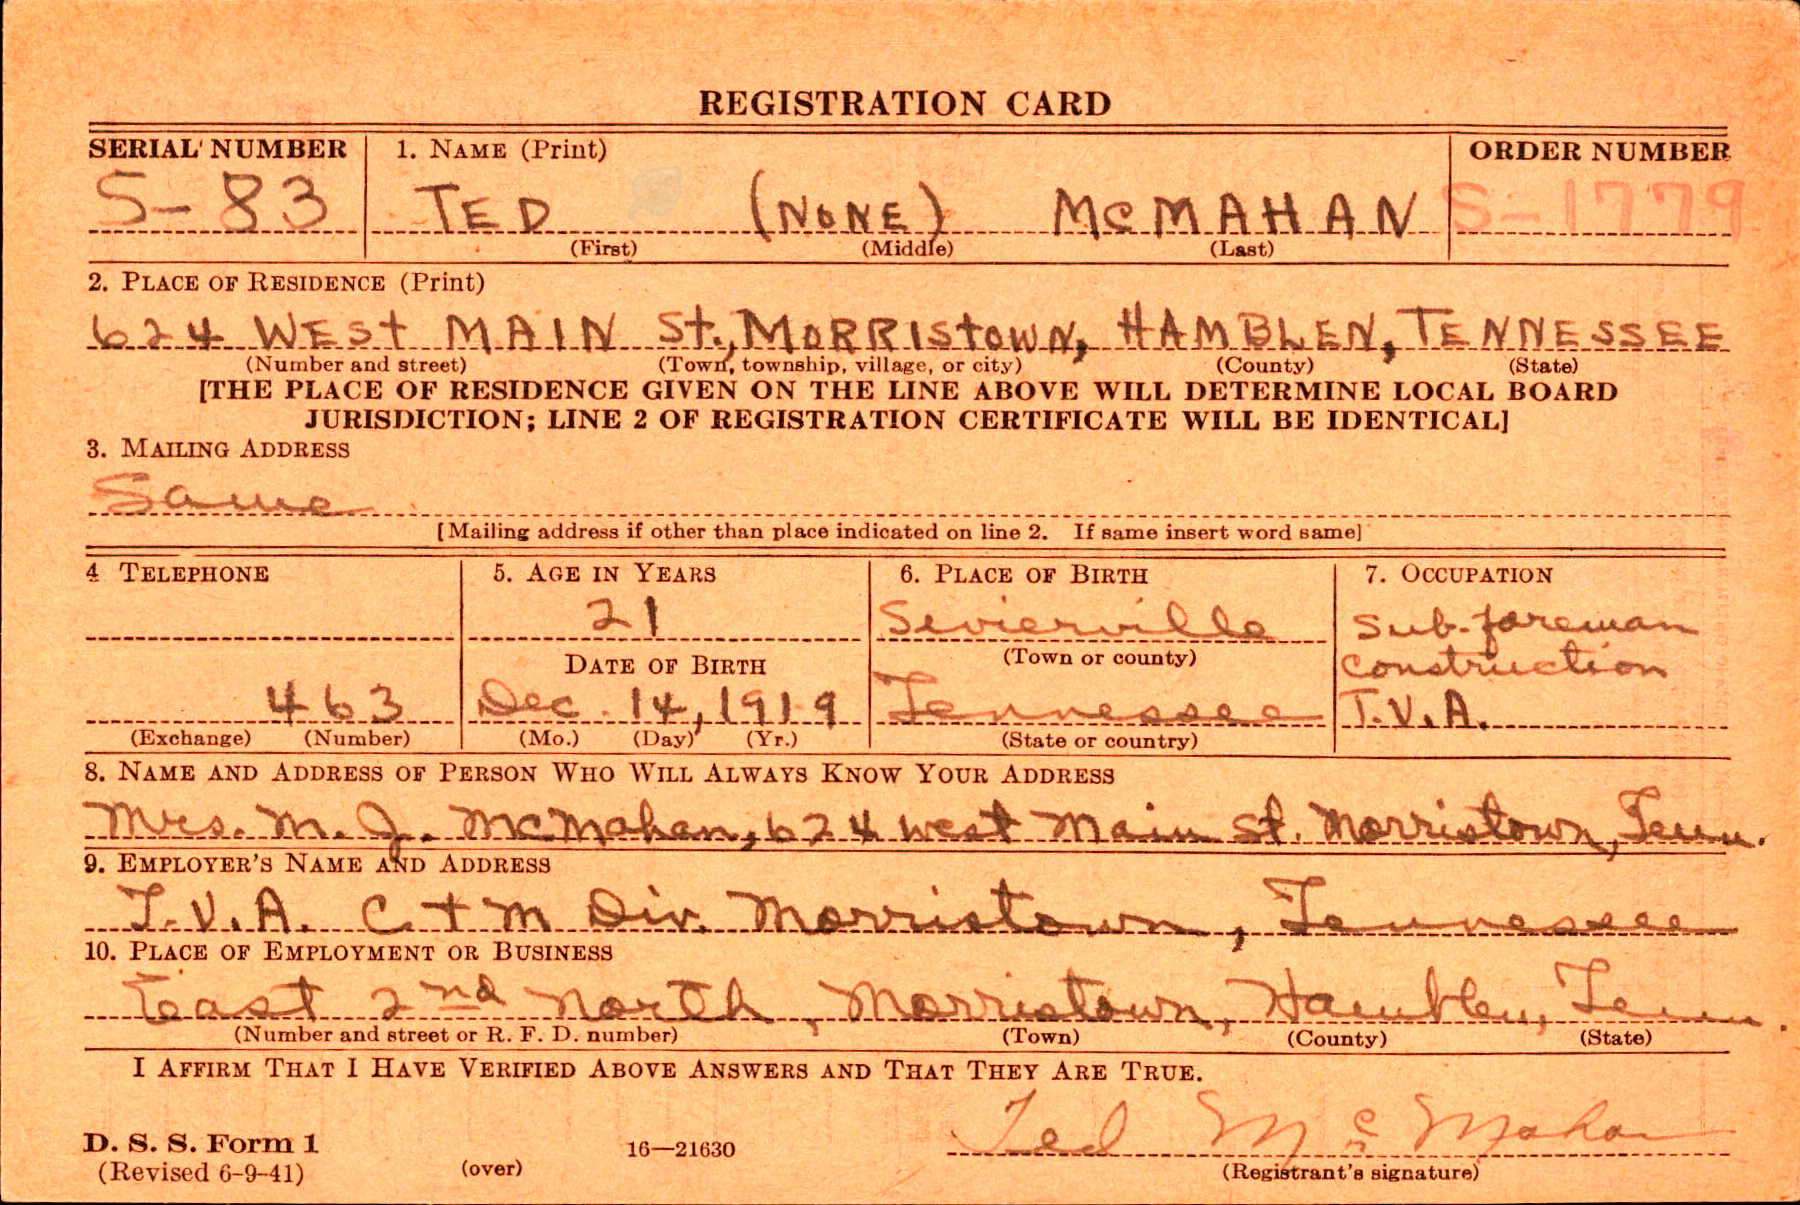 REGISTRATION CARD
SERIAL NUMBER 1. NAME (Print) ORDER NUMBER
S-83 TED (NONE) McMAHAN S-1779
(First) (Middle) (Last)
2. PLACE OF RESIDENCE (Print)
624 WEST MAIN St., MORRIStOWN, HAMBLEN, TENNESSEE
(Number and street) (Town, township, village, or city) (County) (State)
[THE PLACE OF RESIDENCE GIVEN ON THE LINE ABOVE WILL DETERMINE LOCAL BOARD
JURISDICTION; LINE 2 OF REGISTRATION CERTIFICATE WILL BE IDENTICAL]
3. MAILING ADDRESS
Same
[Mailing address if other than place indicated on line 2. If same insert word same]
4 TELEPHONE 5. AGE IN YEARS 6. PLACE OF BIRTH 7. OCCUPATION
21 Sevierville Sub-foreman
DATE OF BIRTH (Town or county) construction
463 Dec. 14, 1919 Tennessee T.V.A.
(Exchange) (Number) (Mo.) (Day) (Yr.) (State or country)
8. NAME AND ADDRESS OF PERSON WHO WILL ALWAYS KNOW YOUR ADDRESS
Mrs. M. J. McMahan, 624 West Main St. Morristown, Tenn.
9. EMPLOYER'S NAME AND ADDRESS
T.V.A. C. + M Div. Morristown, Tennessee
10. PLACE OF EMPLOYMENT OR BUSINESS
East 2nd North, Morristown, Hamblen, Tenn.
(Number and street or R. F. D. number) (Town) (County) (State)
I AFFIRM THAT I HAVE VERIFIED ABOVE ANSWERS AND THAT THEY ARE TRUE.
Ted McMahan
D. S. S. Form 1 16—21630
(Revised 6-9-41) (over) (Registrant's signature)